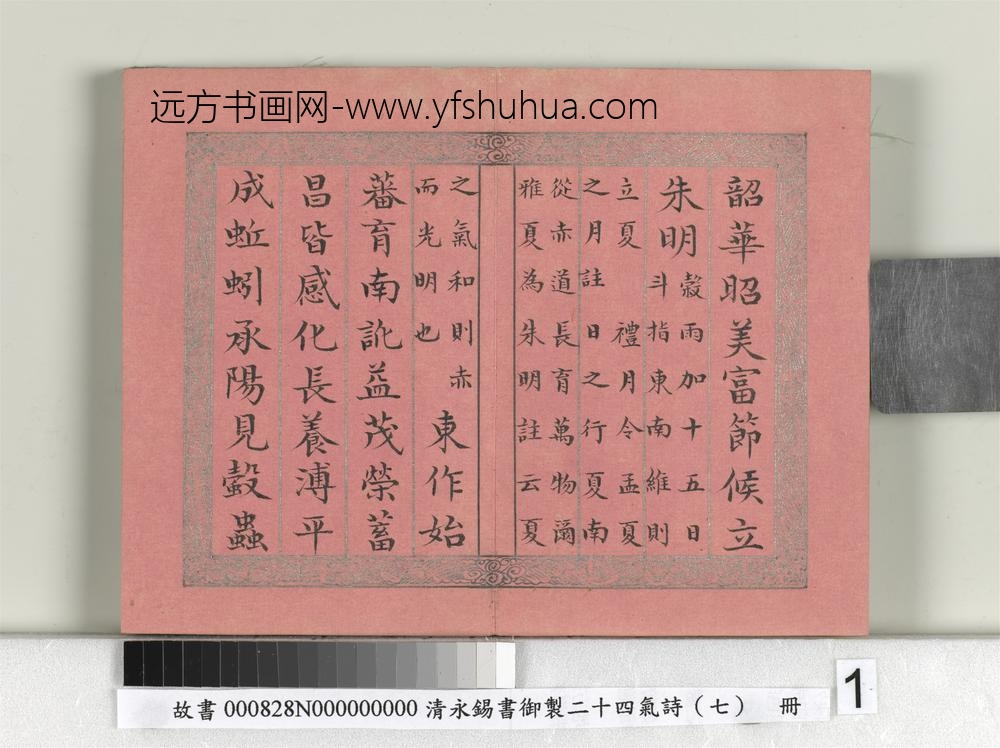 远方书画网-www.yfshuhua.com
韶華昭美富節候立
朱明
穀雨加十五日
斗指東南維則
立夏 禮月令孟夏
之月註 日之行夏南
從赤道長育萬物爾
雅夏為朱明註云夏
之氣和則赤
而光明也
東作始
蕃育南訛益茂榮蓄
昌皆感化長養溥平
成蚯蚓承陽見螜蟲
故書 000828N000000000 清永錫書御製二十四氣詩（七） 冊
1